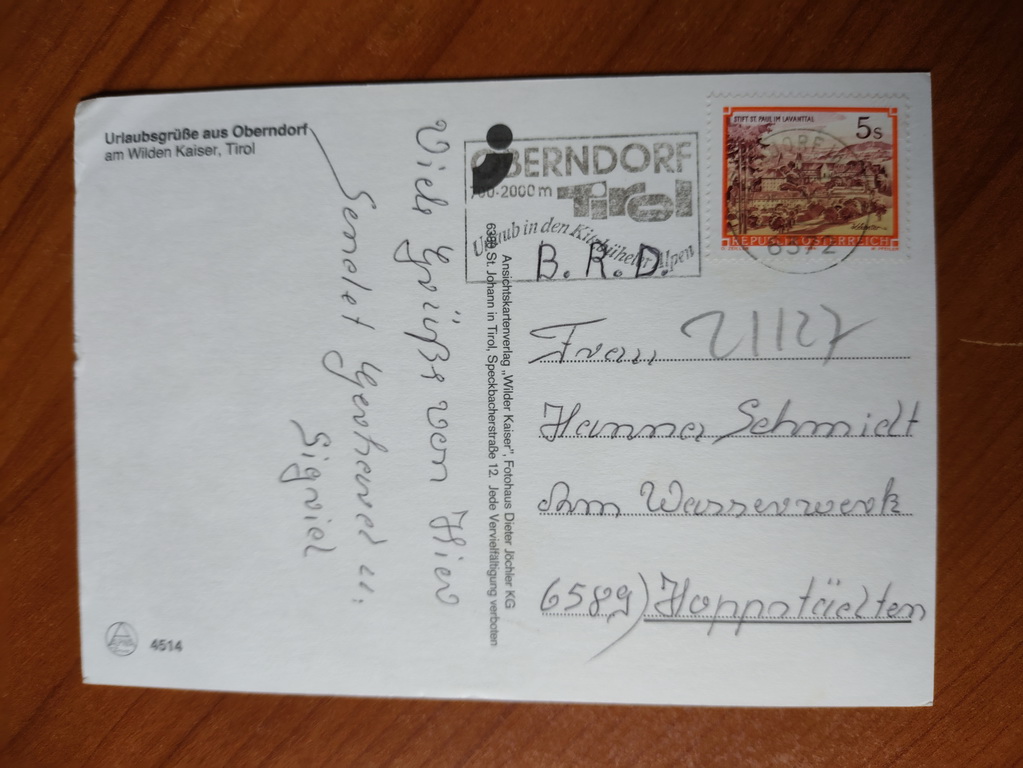 Urlaubsgrüße aus Oberndorf
am Wilden Kaiser, Tirol
Viele Grüße von Hier
Sendet Gerhard u.
Sigrid
4514
Ansichtskartenverlag „Wilder Kaiser“, Fotohaus Dieter Jöchler KG
6380 St. Johann in Tirol, Speckbacherstraße 12. Jede Vervielfältigung verboten
OBERNDORF
700-2000 m Tirol
Urlaub in den Kitzbüheler Alpen
STIFT ST. PAUL IM LAVANTTAL
5s
REPUBLIK ÖSTERREICH
6372
B. R. D.
Frau 21127
Hanna Schmidt
Am Wasserwerk
6589) Hoppstädten